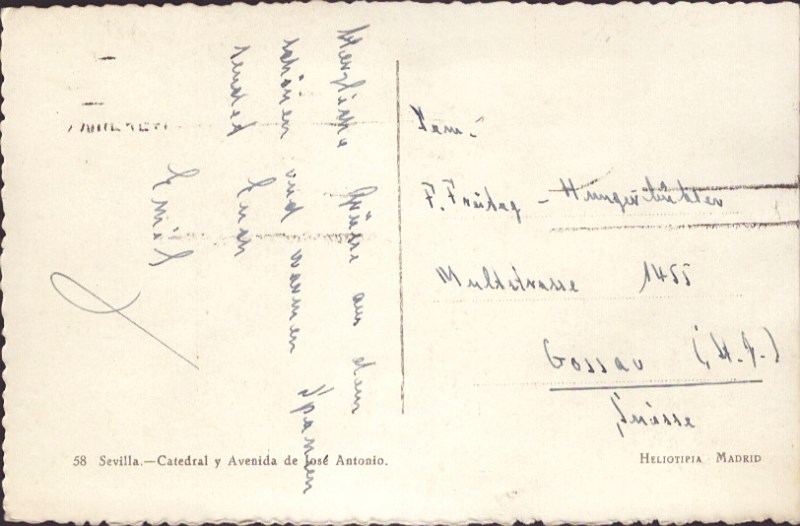 Herzliche Grüsse aus dem
schönen und warmen Spanien
sendet Euch
Emil
Fam.
F. - Hungerbühler
1455
Gossau (St. G.)
Suisse
58 Sevilla.—Catedral y Avenida de José Antonio.
HELIOTIPIA MADRID